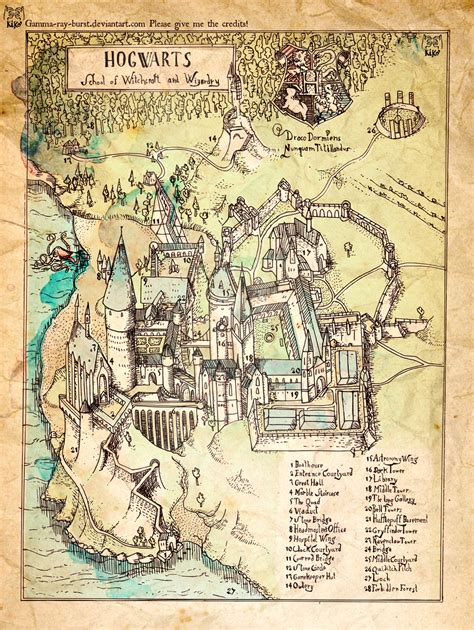 Gamma-ray-burst.deviantart.com Please give me the credits!
KiKo
KiKo
HOGWARTS
School of Witchcraft and Wizardry
Draco Dormiens
Nunquam Titillandus
14
26
21
29
20
27
1 Boathouse
2 Entrance Courtyard
3 Great Hall
4 Marble Staircase
5 The Quad
6 Viaduct
7 Stone Bridge
8 Headmaster Office
9 Hospital Wing
10 Clock Courtyard
11 Covered Bridge
12 Stone Circle
13 Gamekeeper Hut
14 Owlery
15 Astronomy Wing
16 Dark Tower
17 Library
18 Middle Tower
19 The Long Gallery
20 Bell Towers
21 Hufflepuff Basement
22 Gryffindor Tower
23 Ravenclaw Tower
24 Bridge
25 Middle Courtyard
26 Quidditch Pitch
27 Loch
28 Forbidden Forest